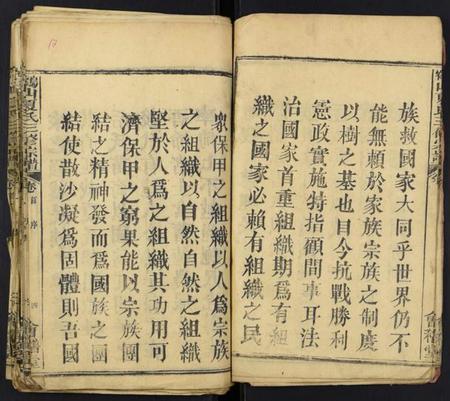 族救國家大同乎世界仍不
能無賴於家族宗族之制度
以樹之基也自今抗戰勝利
憲政實施特指顧間事耳法
治國家首重組織期爲有組
織之國家必賴有組織之民
衆保甲之組織以人爲宗族
之組織以自然自然之組織
堅於人爲之組織其功用可
濟保甲之窮果能以宗族團
結之精神發而爲國族之團
結使散沙凝爲固體則吾國